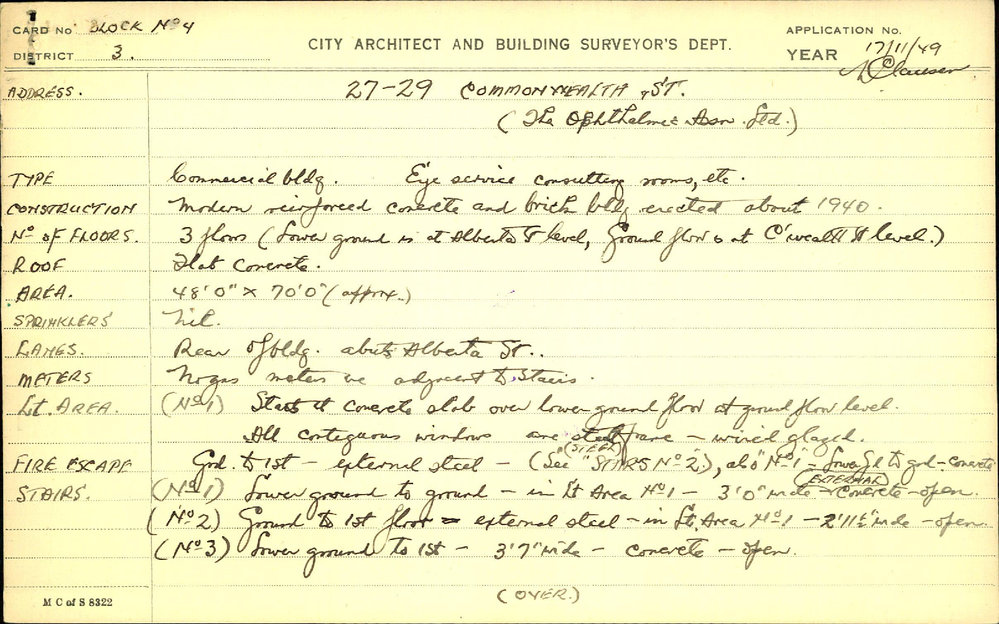 CARD No BLOCK No 4
DISTRICT 3.
CITY ARCHITECT AND BUILDING SURVEYOR'S DEPT.
APPLICATION No.
YEAR 17/11/49
ADDRESS. 27-29 COMMONWEALTH ST.
(The Ophthalmic Assn. Ltd.)
TYPE Commercial bldg. Eye service consulting rooms, etc.
CONSTRUCTION Modern reinforced concrete and brick bldg erected about 1940.
No OF FLOORS. 3 floors (Lower ground is at Alberta St level, Ground floor is at C'wealth St level.)
ROOF Flat concrete.
AREA. 48'0" x 70'0" (approx.)
SPRINKLERS Nil.
LANES. Rear of bldg. abuts Alberta St..
METERS No gas meters adjacent to Stairs.
Lt. AREA. (No 1) Starts at concrete slab over lower ground floor at ground floor level.
All contiguous windows are steel frame - wired glazed.
FIRE ESCAPE Grd. to 1st - external steel - (See "STAIRS No 2"), also "No 1" - Lower Gd to grd - concrete
(STEEL)
STAIRS. (No 1) Lower ground to ground - in Lt Area No 1 - 3'0" wide - concrete - open.
(EXTERNAL)
(No 2) Ground to 1st floor - external steel - in Lt. Area No 1 - 2'11½" wide - open
(No 3) Lower ground to 1st - 3'7" wide - concrete - open.
(OVER.)
M C of S 8322